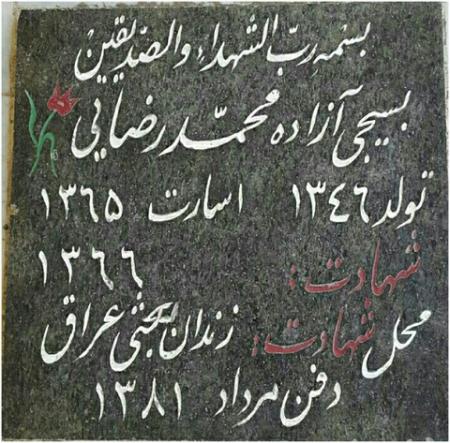 بسمه رب الشهداء والصدیقین
بسیجی آزاده محمد رضایی
تولد ۱۳۴۶ اسارت ۱۳۶۵
شهادت: ۱۳۶۶
محل شهادت: زندان بعثی عراق
دفن مرداد ۱۳۸۱